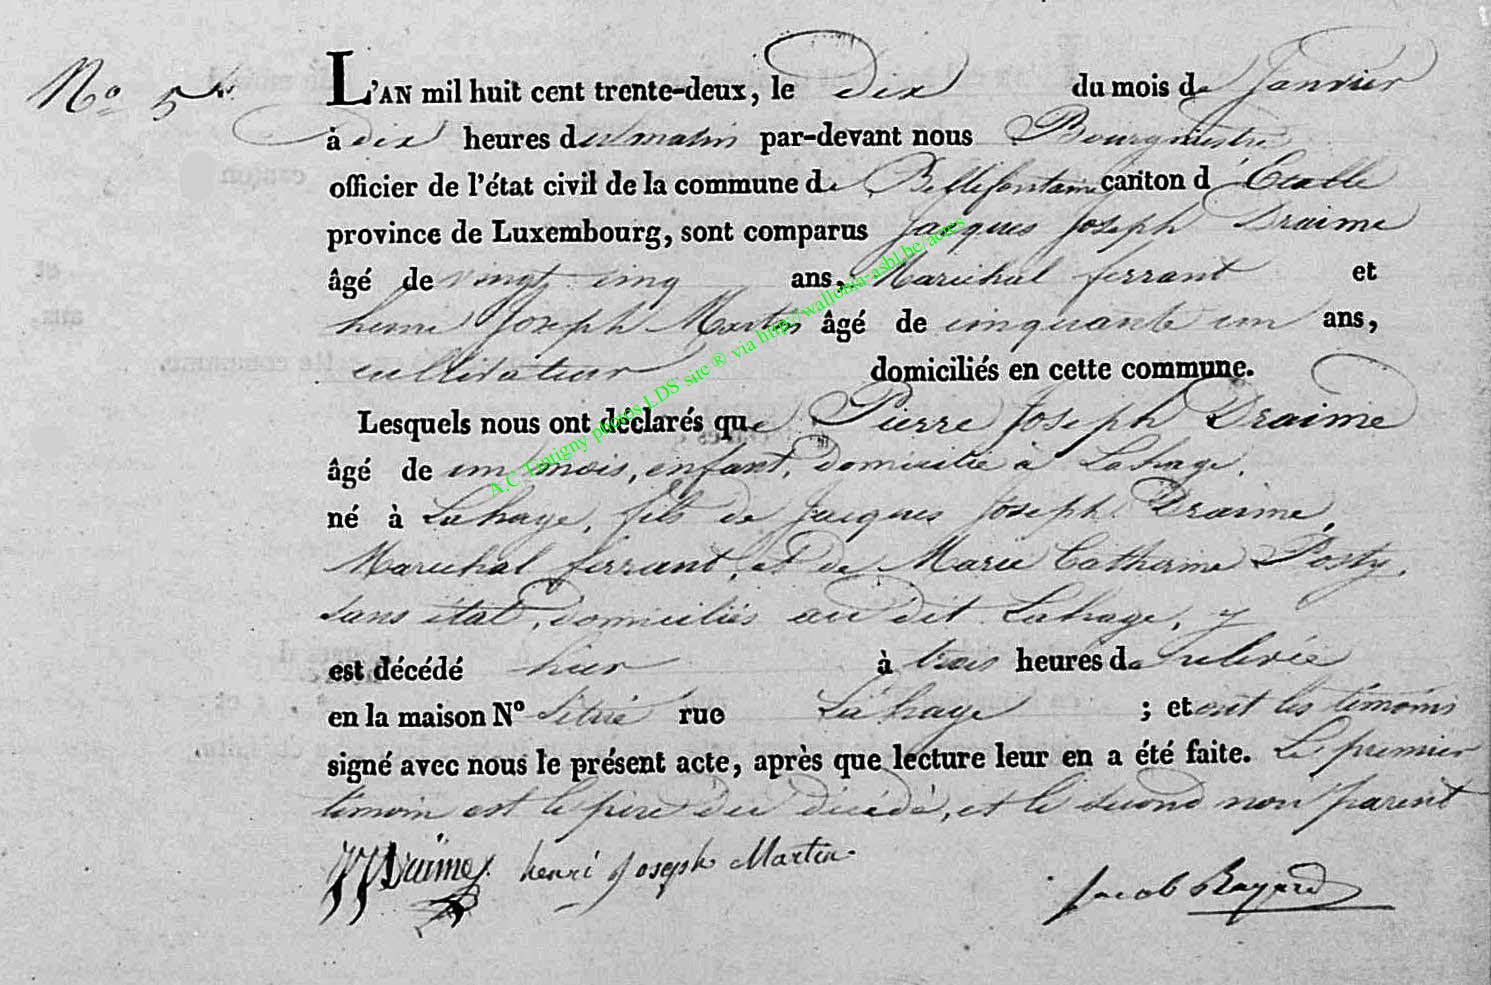 No 5
L'AN mil huit cent trente-deux, le dix du mois de Janvier
à dix heures du matin par-devant nous Bourgmestre
officier de l'état civil de la commune de Bellefontaine canton d'Etalle
province de Luxembourg, sont comparus Jacques Joseph Draime
âgé de vingt cinq ans, Maréchal ferrant et
henri Joseph Martin âgé de cinquante un ans,
cultivateur domiciliés en cette commune.
Lesquels nous ont déclarés que Pierre Joseph Draime
âgé de un mois, enfant, domicilié à Lahage,
né à Lahage, fils de Jacques Joseph Draime,
Maréchal ferrant, et de Marie Catherine Posty,
sans état, domiciliés au dit Lahage, y
est décédé hier à trois heures de relevée
en la maison No située rue Lahage ; et ont les témoins
signé avec nous le présent acte, après que lecture leur en a été faite. Le premier
témoin est le père du décédé, et le second non parent
JJDraime henri Joseph Martin
Jacob Bayard
A.C Tintigny photos LDS site ® via http://wallonia-asbl.be/actes